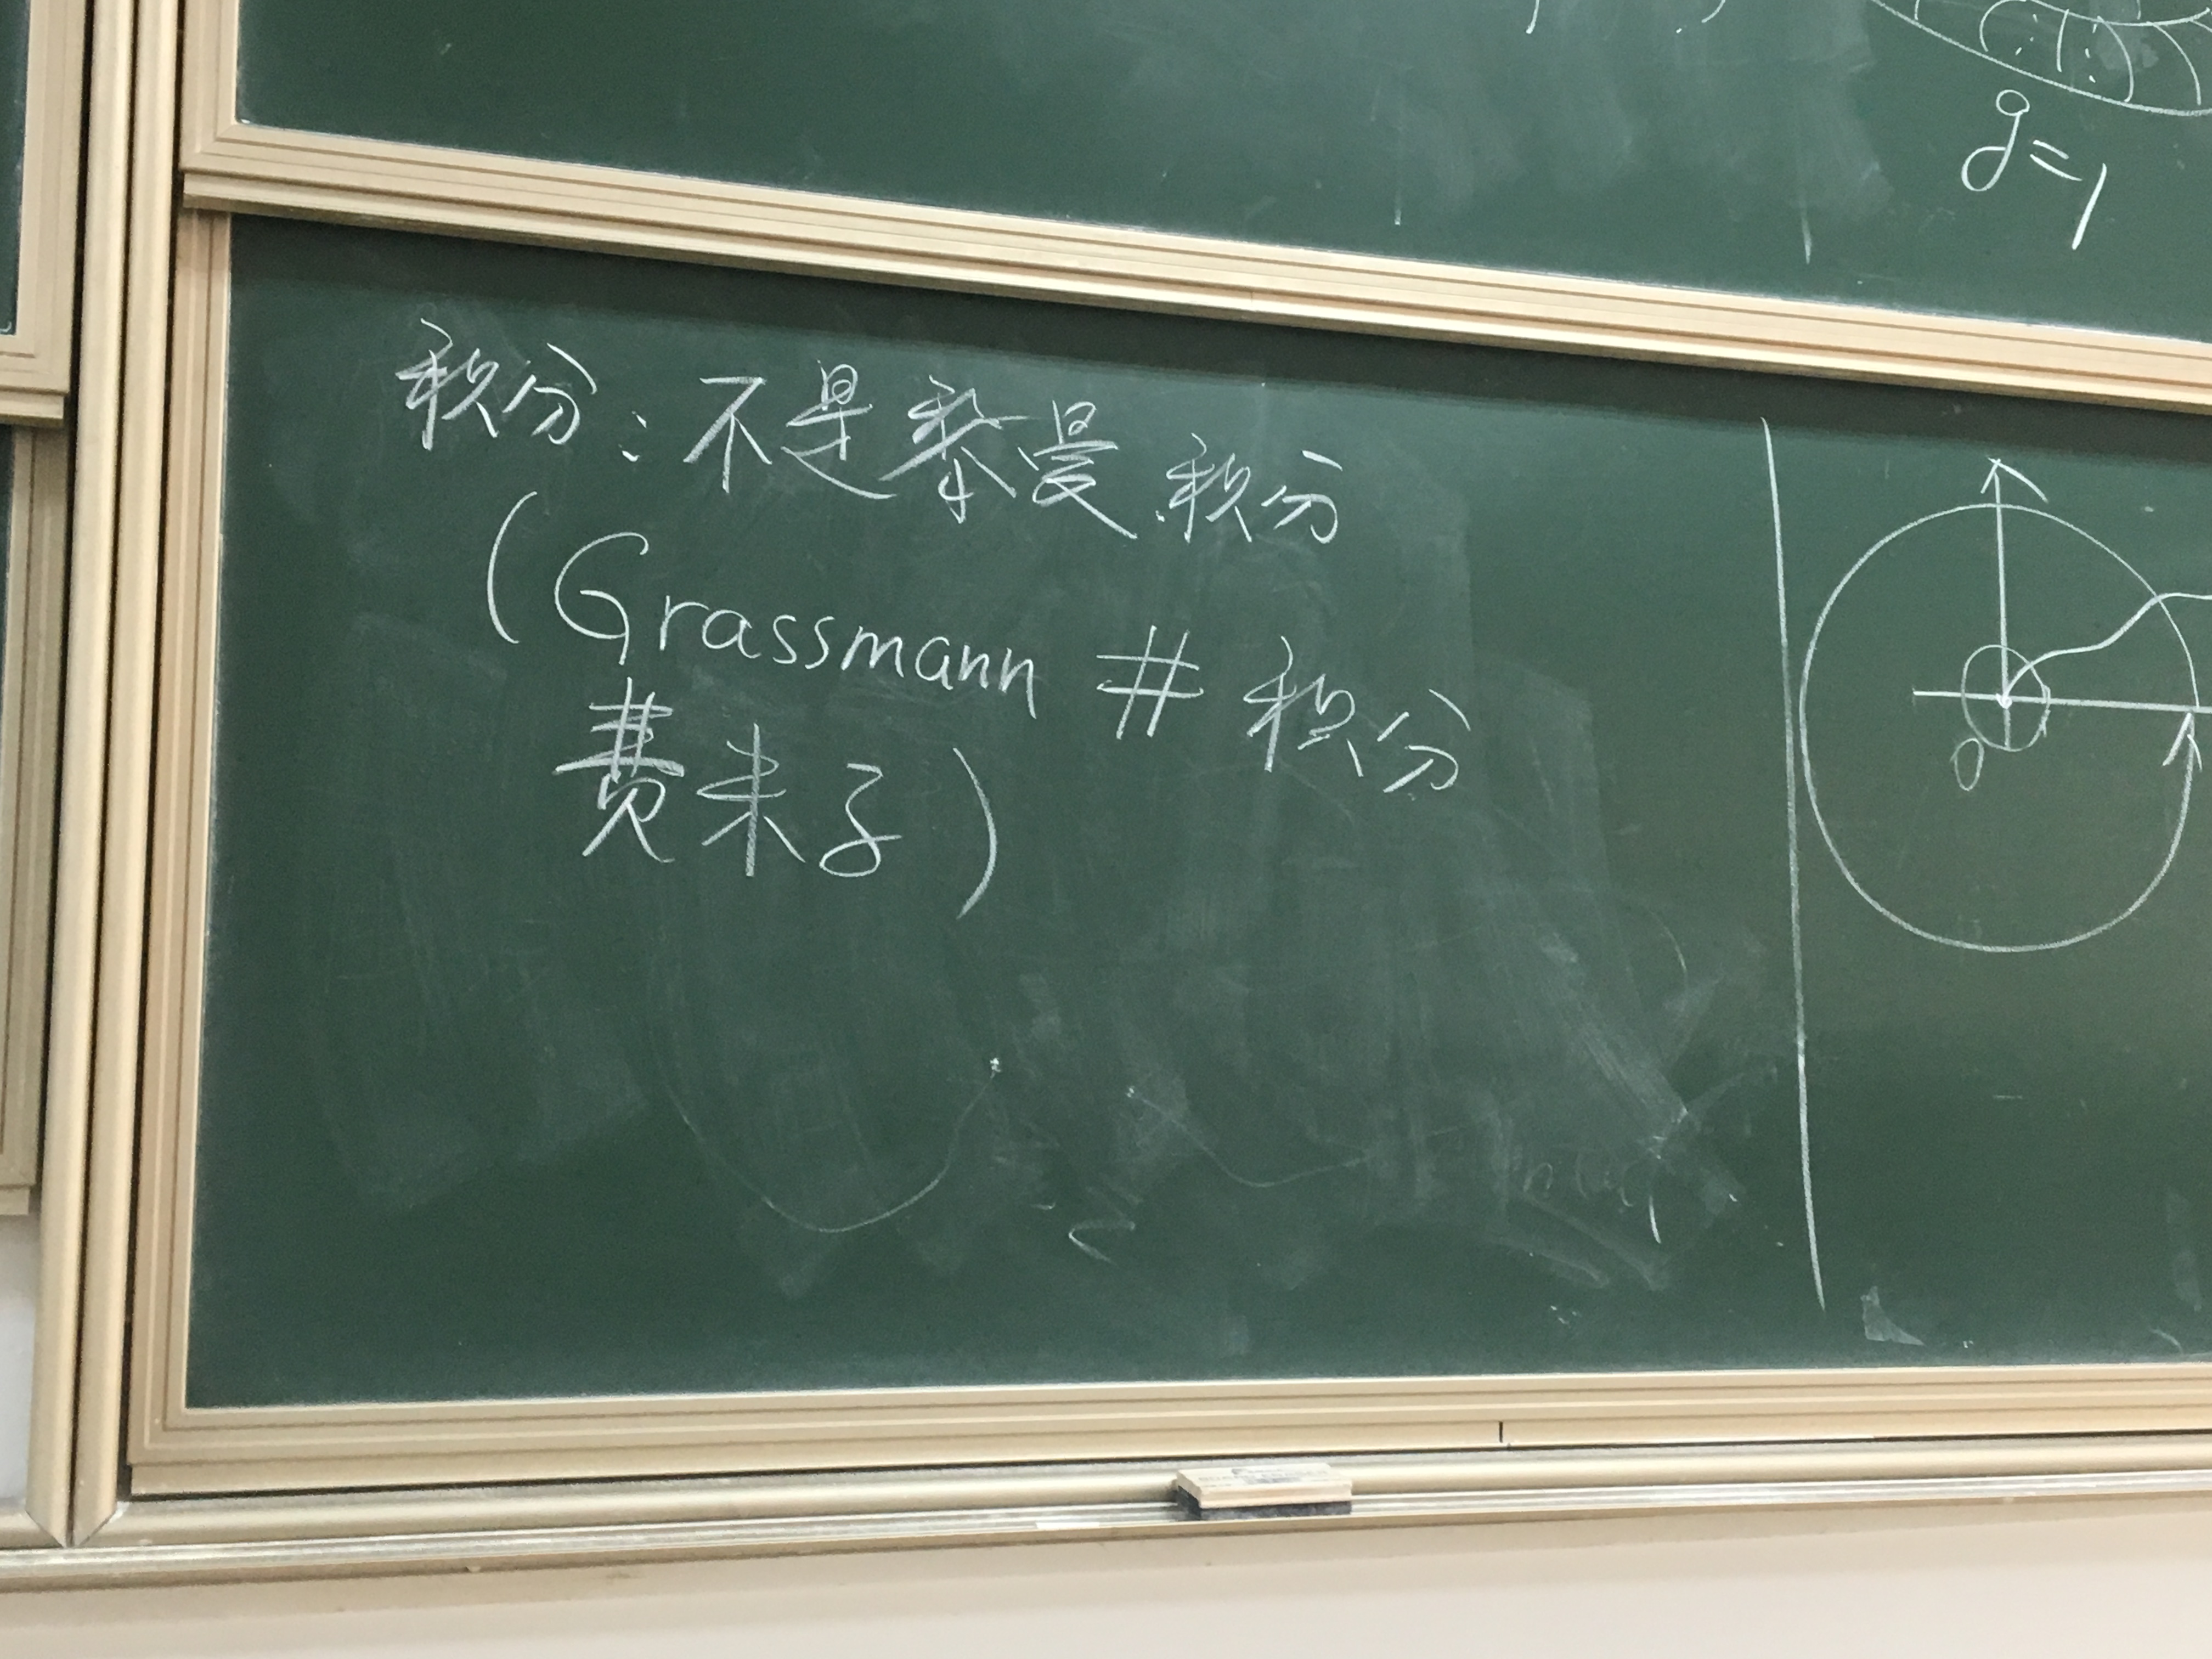 g=1
积分：不是黎曼积分
(Grassmann # 积分
费米子)
0